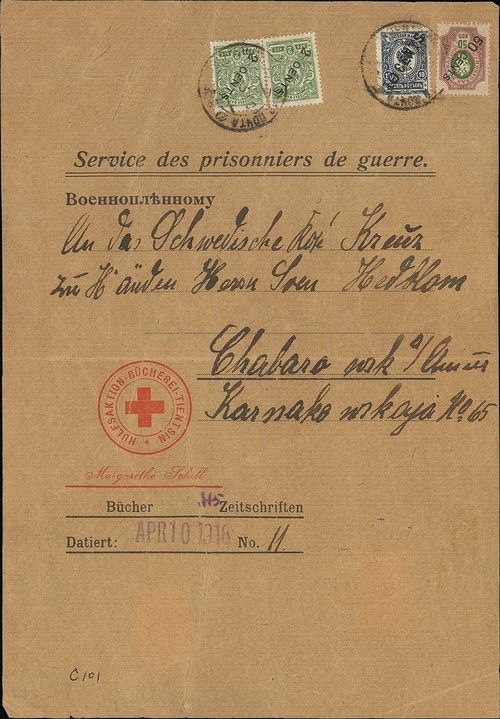 2 CENTS 2 CENTS
50 CENTS
Service des prisonniers de guerre.
Военноплѣнному
An das Schwedische Rote Kreuz
zu Händen Herrn Sven Hedblom
Chabarowsk a/Amur
Karsakowskaja No 65
HÜLFSAKTION-BÜCHEREI-TIENTSIN
Margarethe Scholl
Bücher Zeitschriften
Datiert: APR 10 1918 No. 11.
C101